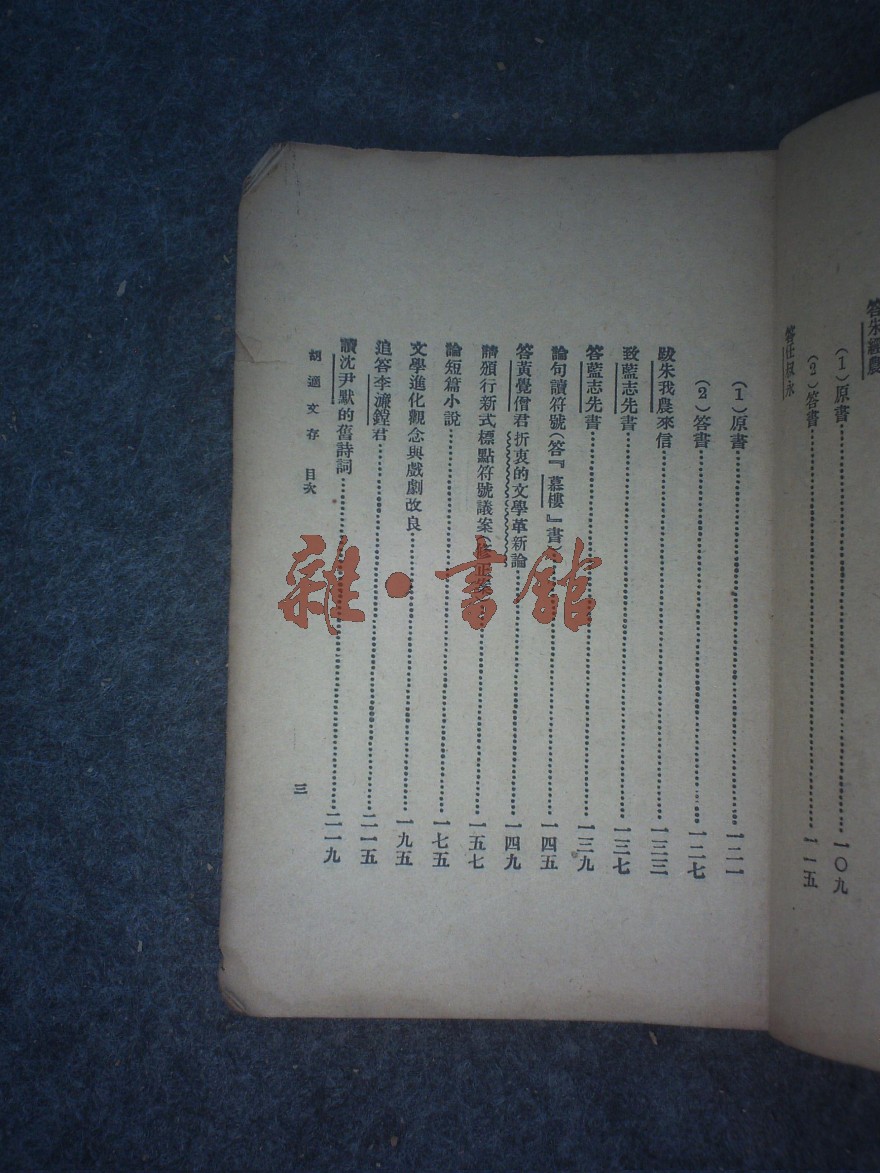 答朱經農
(1)原書……一〇九
(2)答書……一一五
答任叔永
(1)原書……一二一
(2)答書……一二七
跋朱我農來信……一三三
致藍志先書……一三七
答藍志先書……一三九
論句讀符號(答『慕樓』書)……一四五
答黃覺僧君折衷的文學革新論……一四九
請頒行新式標點符號議案(修正案)……一五七
論短篇小說……一七五
文學進化觀念與戲劇改良……一九五
追答李濂鏜君……二一五
讀沈尹默的舊詩詞……二一九
胡適文存 目次 三
雜·書館